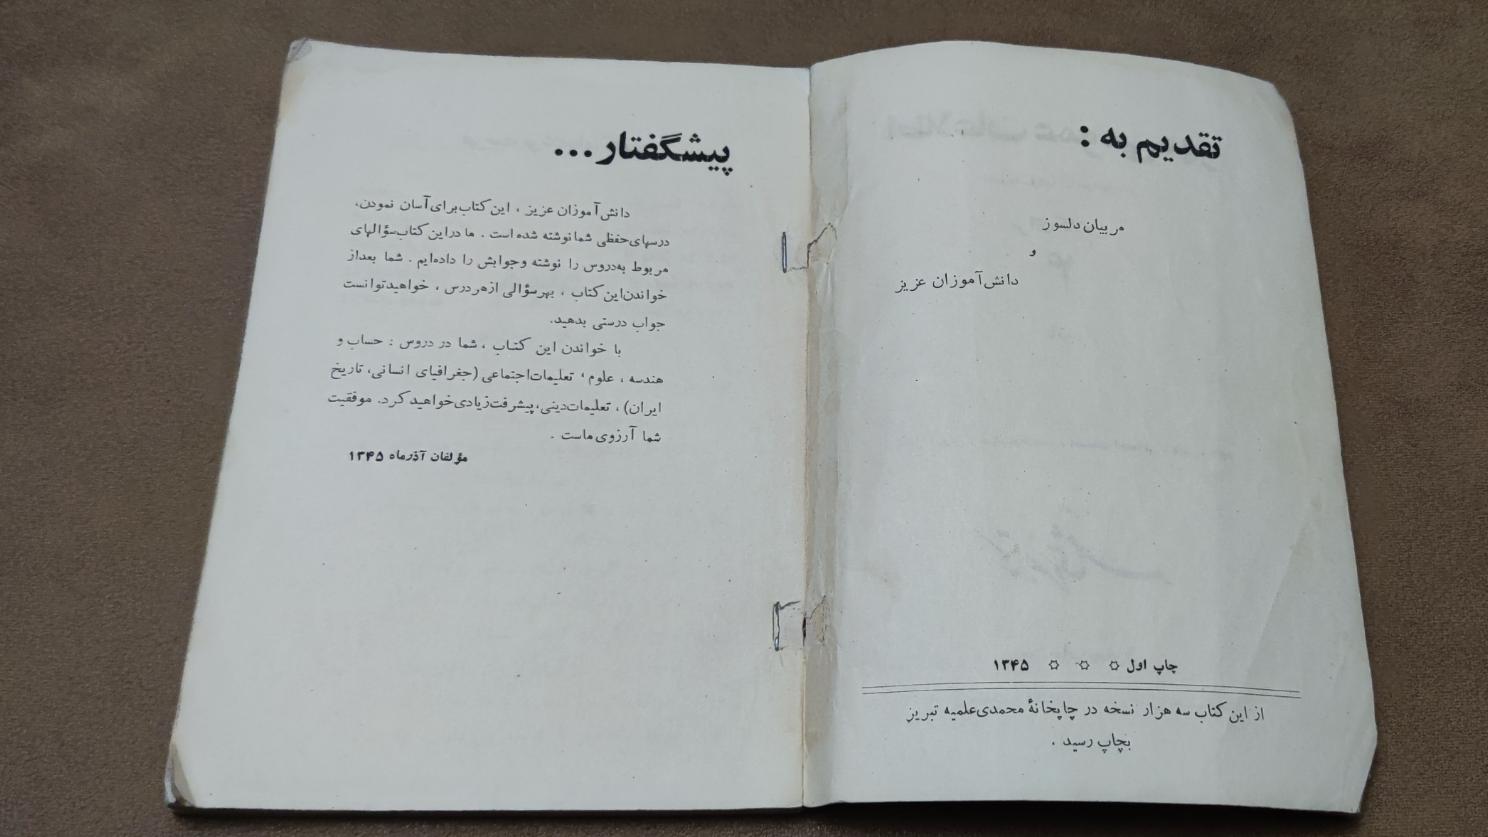 تقدیم به :
مربیان دلسوز
و
دانش‌آموزان عزیز
چاپ اول ✡ ✡ ✡ ۱۳۴۵
از این کتاب سه هزار نسخه در چاپخانهٔ محمدی‌علمیه تبریز
بچاپ رسید .
پیشگفتار...
دانش‌آموزان عزیز ، این کتاب برای آسان نمودن،
درسهای حفظی شما نوشته شده است . ما در این کتاب سؤالهای
مربوط به دروس را نوشته و جوابش را داده‌ایم . شما بعد از
خواندن این کتاب ، بهر سؤالی از هر درس ، خواهید توانست
جواب درستی بدهید.
با خواندن این کتاب ، شما در دروس : حساب و
هندسه ، علوم ، تعلیمات اجتماعی (جغرافیای انسانی، تاریخ
ایران) ، تعلیمات دینی، پیشرفت زیادی خواهید کرد. موفقیت
شما آرزوی ماست .
مؤلفان آذرماه ۱۳۴۵